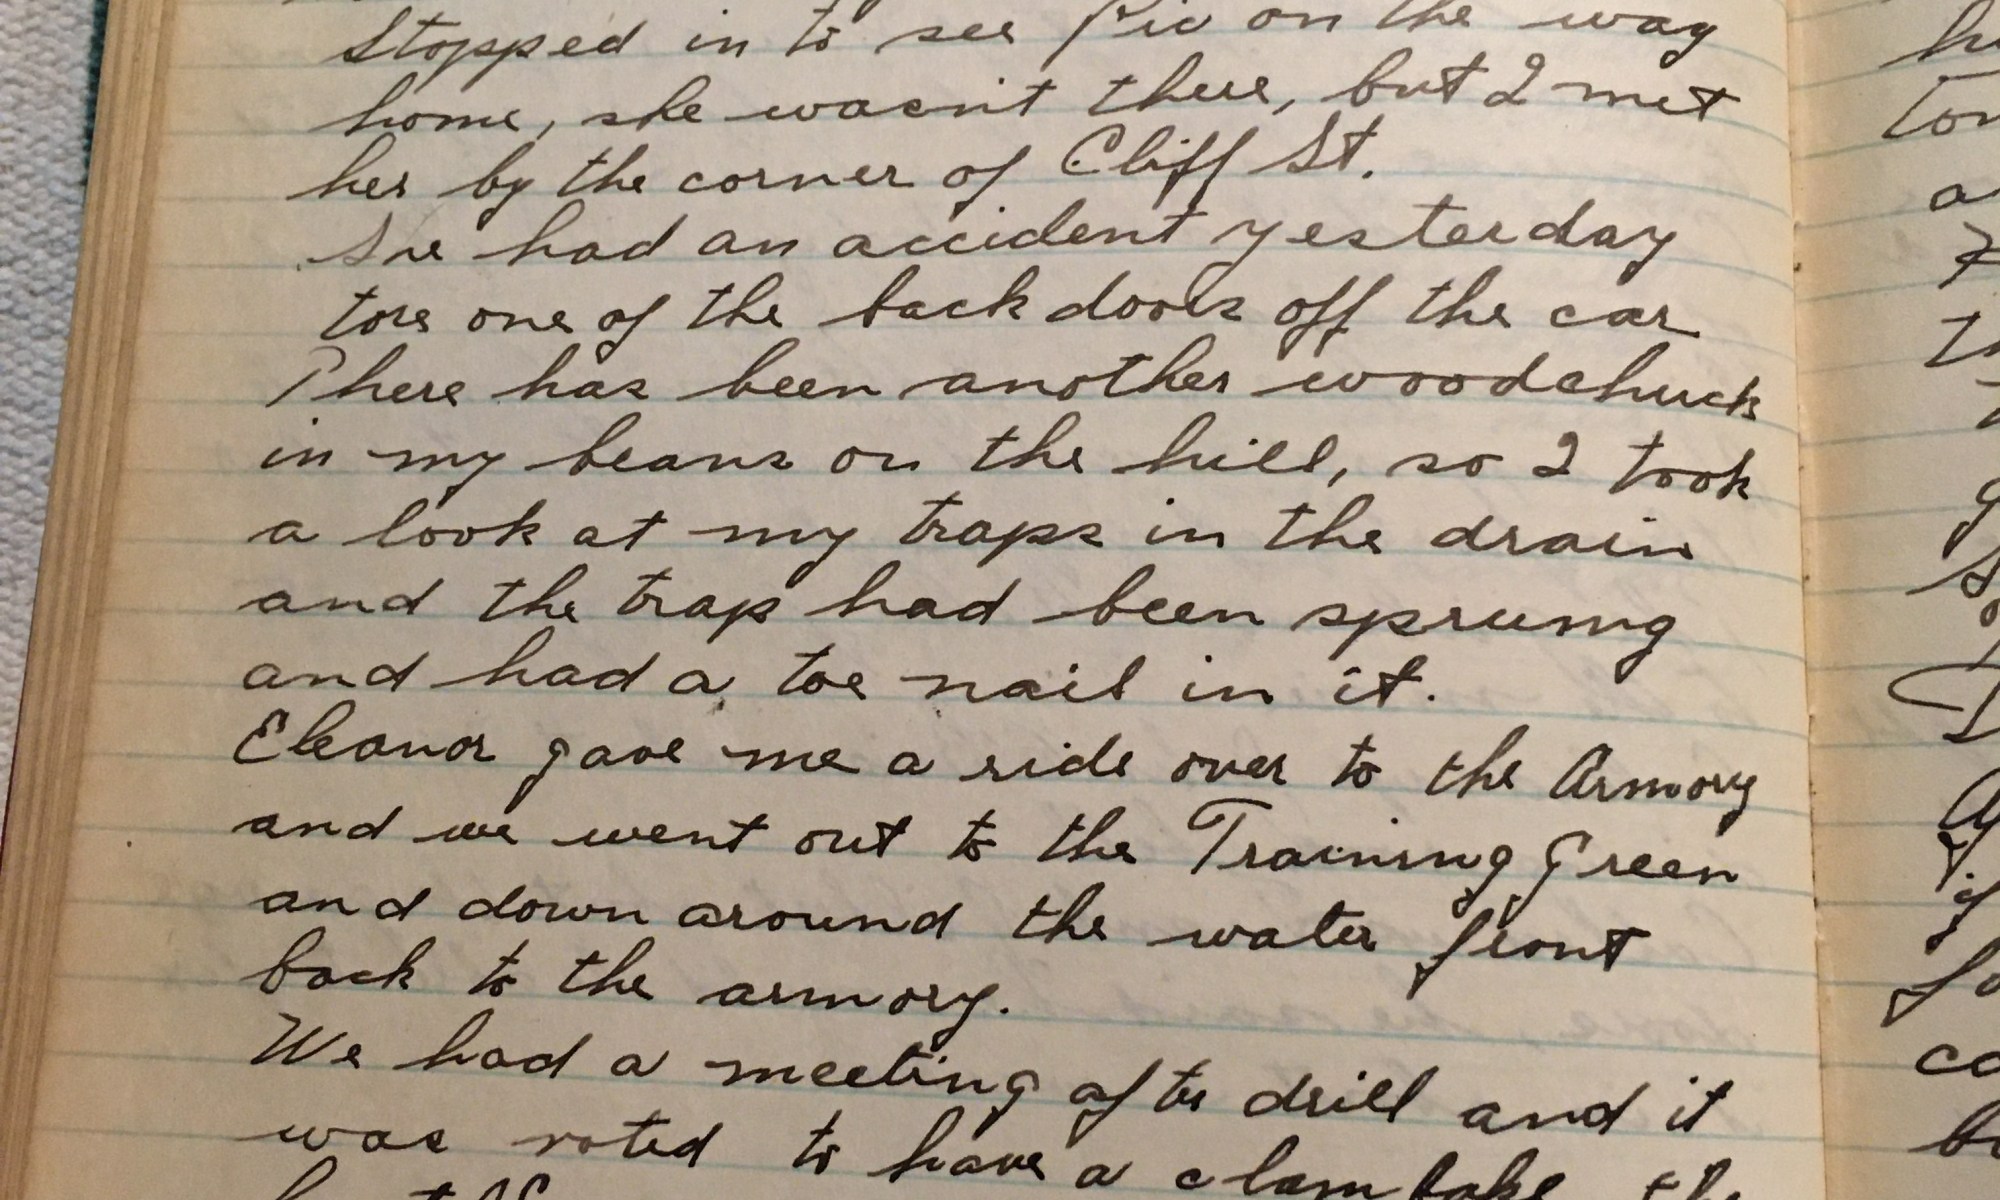 Stopped in to see Piv on the way
home, she wasn't there, but I met
her by the corner of Cliff St.
Sve had an accident yesterday
tore one of the back doors off the car
There has been another woodchuck
in my beans on the hill, so I took
a look at my traps in the drain
and the trap had been sprung
and had a toe nail in it.
Eleanor gave me a ride over to the Armory
and we went out to the Training Green
and down around the water front
back to the armory.
We had a meeting after drill and it
was voted to have a clam bake